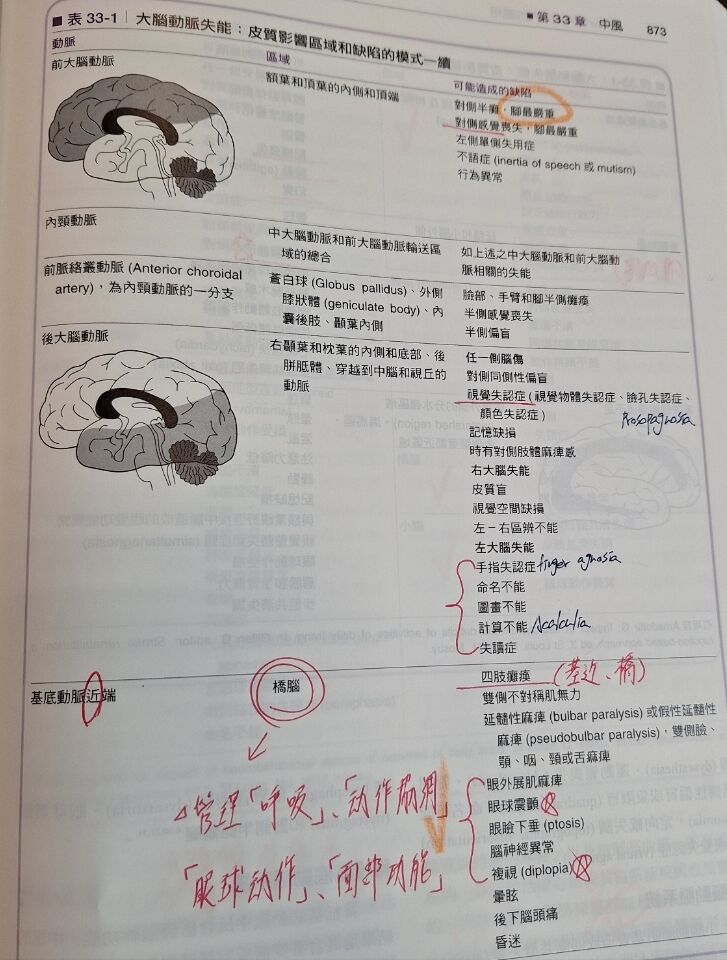 ■ 第 33 章 中風 873
■ 表 33-1 大腦動脈失能：皮質影響區域和缺陷的模式—續
動脈 區域 可能造成的缺陷
前大腦動脈 額葉和頂葉的內側和頂端 對側半癱，腳最嚴重
對側感覺喪失，腳最嚴重
左側單側失用症
不語症 (inertia of speech 或 mutism)
行為異常
內頸動脈 中大腦動脈和前大腦動脈輸送區域的總合 如上述之中大腦動脈和前大腦動脈相關的失能
前脈絡叢動脈 (Anterior choroidal
artery)，為內頸動脈的一分支
蒼白球 (Globus pallidus)、外側
膝狀體 (geniculate body)、內
囊後肢、顳葉內側
臉部、手臂和腳半側癱瘓
半側感覺喪失
半側偏盲
後大腦動脈
右顳葉和枕葉的內側和底部、後
胼胝體、穿越到中腦和視丘的
動脈
任一側腦傷
對側同側性偏盲
視覺失認症 (視覺物體失認症、臉孔失認症、
顏色失認症)
Prosopagnosia
記憶缺損
時有對側肢體麻痺感
右大腦失能
皮質盲
視覺空間缺損
左－右區辨不能
左大腦失能
手指失認症 finger agnosia
命名不能
圖畫不能
計算不能 Acalculia
失讀症
基底動脈近端 橋腦
四肢癱瘓 (基近、橋)
雙側不對稱肌無力
延髓性麻痺 (bulbar paralysis) 或假性延髓性
麻痺 (pseudobulbar paralysis)，雙側臉、
顎、咽、頸或舌麻痺
眼外展肌麻痺
眼球震顫
眼瞼下垂 (ptosis)
腦神經異常
複視 (diplopia)
暈眩
後下腦頭痛
昏迷
管理「呼吸」、「动作
「眼球动作」、「面部功能」